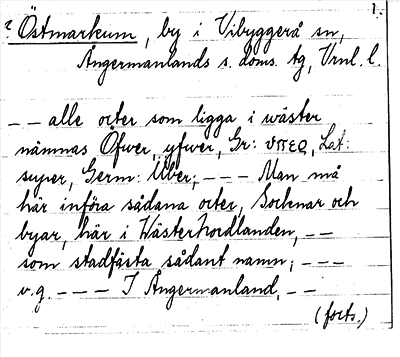 1.
? Östmarkum, by i Vibyggerå sn,
Ångermanlands s. doms. tg, Vrnl. l.
-- alle orter som ligga i wäster
nämnas Öfwer, yfwer, Gr: ὑπερ, Lat:
super, Germ: Über; --- Man må
här införa sådana orter, Sochnar och
byar, här i Wästerhordlanden, --
som stadfästa sådant namn; ---
v.g. --- I Ångermanland, --
(forts.)